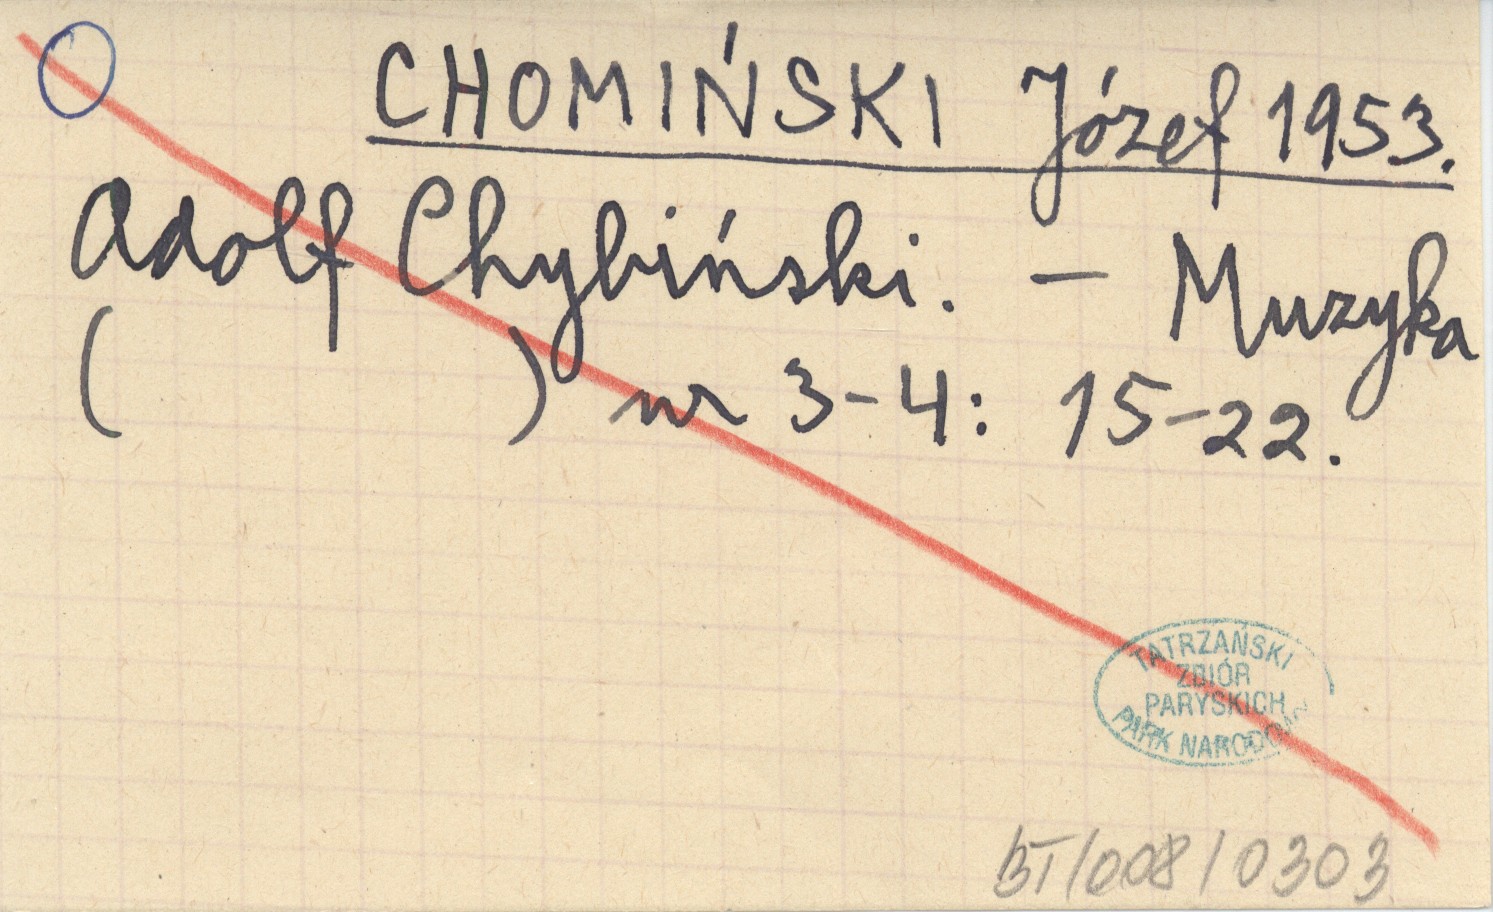 CHOMIŃSKI Józef 1953.
Adolf Chybiński. — Muzyka
( ) nr 3-4: 15-22.
TATRZAŃSKI
ZBIÓR
PARYSKICH
PARK NARODOWY
BT/008/0303